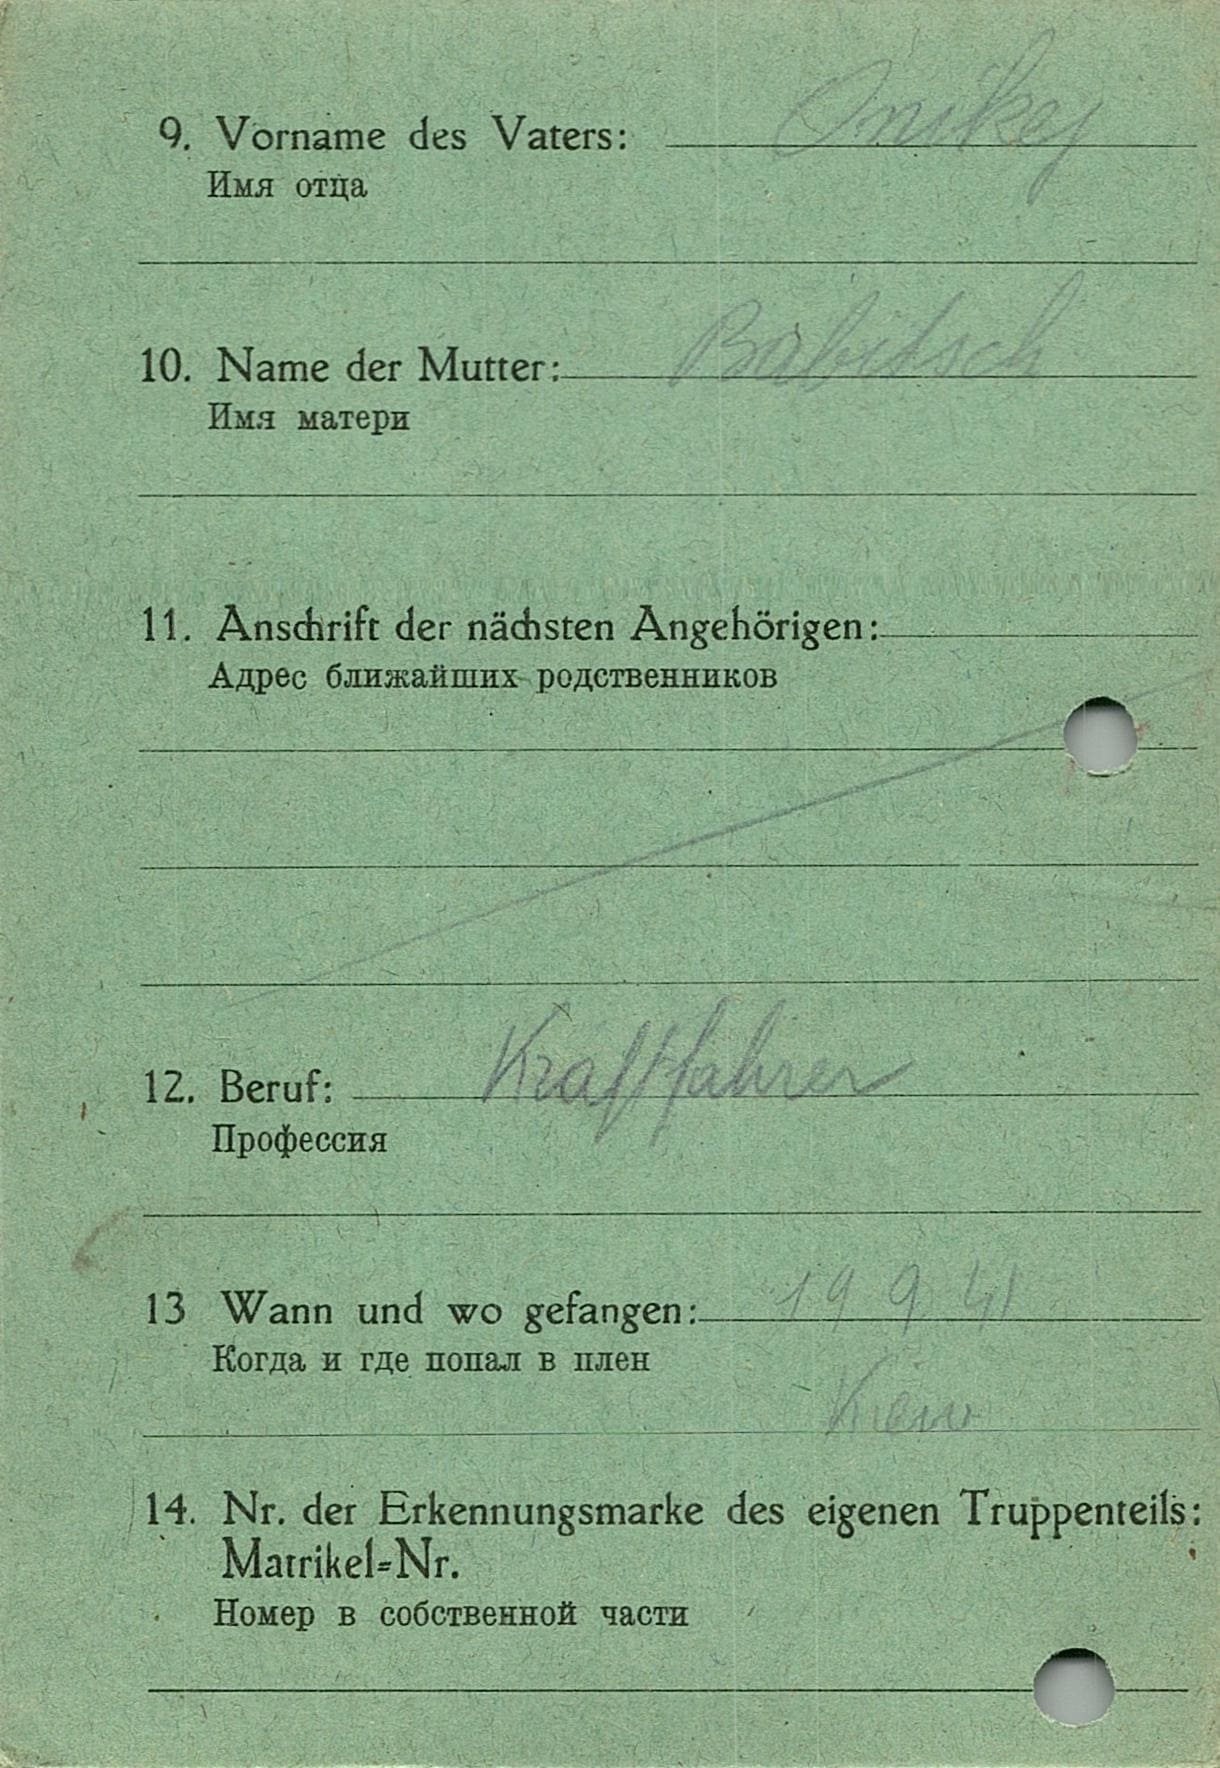 9. Vorname des Vaters: Onikej
Имя отца
10. Name der Mutter: Babitsch
Имя матери
11. Anschrift der nächsten Angehörigen:
Адрес ближайших родственников
12. Beruf: Kraftfahrer
Профессия
13 Wann und wo gefangen: 19 9 41
Когда и где попал в плен
Kiew
14. Nr. der Erkennungsmarke des eigenen Truppenteils:
Matrikel=Nr.
Номер в собственной части